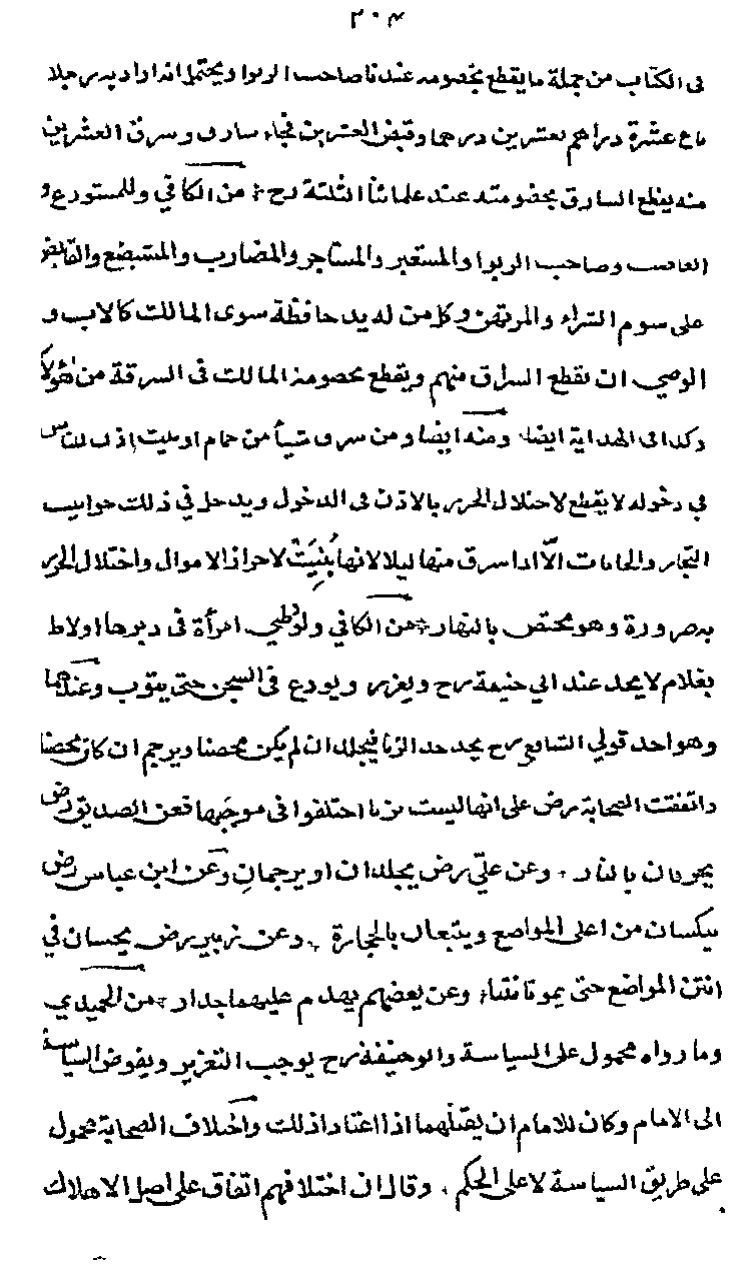 ٢٠٤
فى الكتاب من جملة ما يقطع بخصومه عندنا صاحب الربوا ويحتمل انه اراد به رجلا
باع عشرة دراهم بعشرين درهما وقبض العشرين فجاء سارق وسرق العشرين
منه يقطع السارق بخصومته عند علمائنا الثلثة رح من الكافي وللمستودع و
الغاصب وصاحب الربوا والمستعير والمستاجر والمضارب والمستبضع والقابض
على سوم الشراء والمرتهن وكل من له يد حافظة سوى المالك كالاب و
الوصي ان يقطع السراق منهم ويقطع بخصومة المالك فى السرقة من هؤلاء
وكذا فى الهداية ايضا ومنه ايضا ومن سرق شيأ من حمام او بيت اذن للناس
في دخوله لا يقطع لاختلال الحرز بالاذن فى الدخول ويدخل في ذلك حوانيت
التجار والخانات الّا اذا سرق منها ليلا لانها بُنِيَتْ لاحراز الاموال واختلال الحرز
به ضرورة وهو مختص بالنهار من الكافي ولو وطئ امرأة فى دبرها او لاط
بغلام لا يحد عند ابي حنيفة رح ويعزر ويودع فى السجن حتى يتوب وعندهما
وهو احد قولي الشافع رح يحد حد الزنا فيجلد ان لم يكن محصنا ويرجم ان كان محصنا
واتفقت الصحابة رض على انها ليست بزنا اختلفوا فى موجبها فعن الصديق رض
يحرقان بالنار وعن عليّ رض يجلدان او يرجمان وعن ابن عباس رض
ينكسان من اعلى المواضع ويتبعان بالحجارة وعن زبير رض يحبسان في
انتن المواضع حتى يموتا نتنا وعن بعضهم يهدم عليهما جدار من الحميدي
وما رواه محمول على السياسة وابوحنيفة رح يوجب التعزير ويفوض السياسة
الى الامام وكان للامام ان يقتلهما اذا اعتادا ذلك واختلاف الصحابة محمول
على طريق السياسة لا على الحكم وقال ان اختلافهم اتفاق على اصل الاهلاك